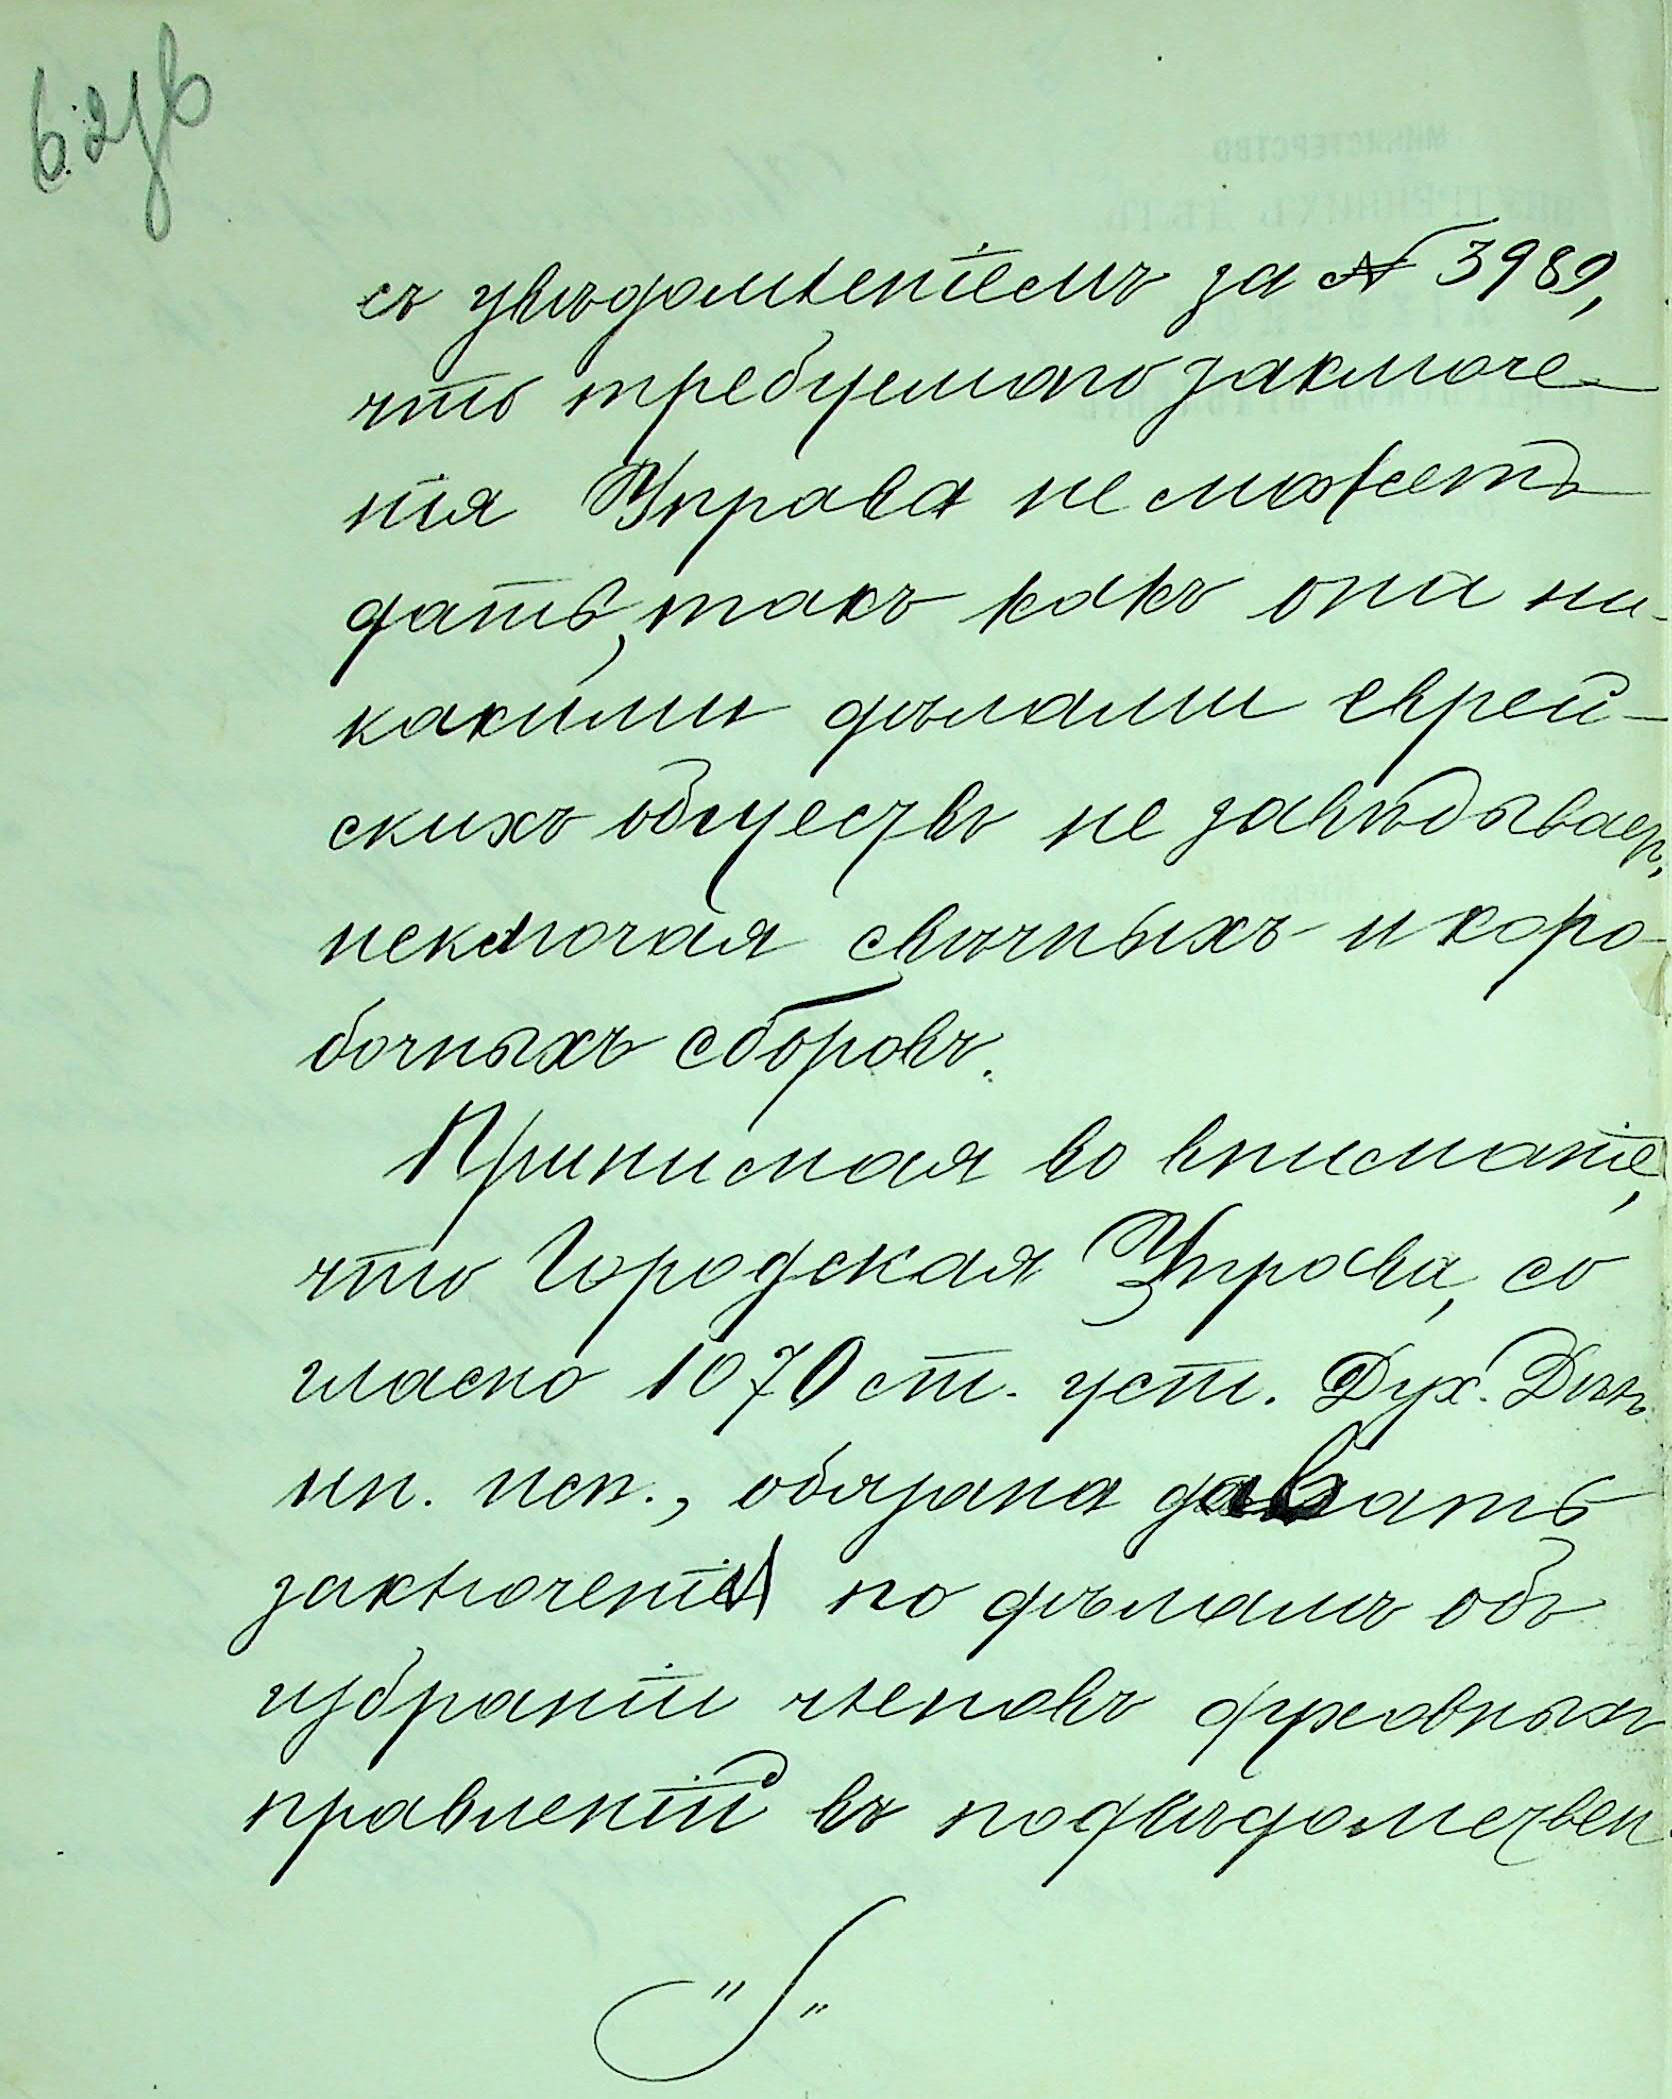 съ увѣдомленіемъ за № 3989,
что требуемаго заключе-
нія Управа не можетъ
дать, такъ какъ она ни-
какими дѣлами еврей-
скихъ обществъ не завѣдываетъ,
исключая свѣчныхъ и коро-
бочныхъ сборовъ.
Принимая во вниманіе,
что Городская Управа, со
гласно 1070 ст. уст. Дух. Дѣлъ
ин. исп., обязана давать
заключенія по дѣламъ объ
избраніи членовъ духовныхъ
правленій въ подвѣдомствен